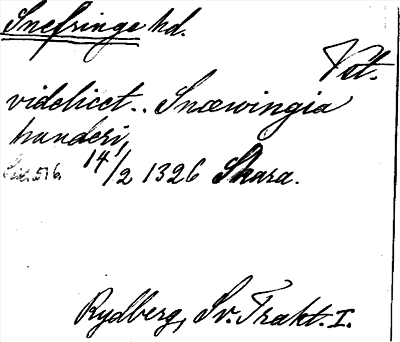 Snefringe hd.
Vstm.
videlicet.. Snæwingia
handeri,
14/2 1326 Skara.
Rydberg, Sv. Trakt. I.